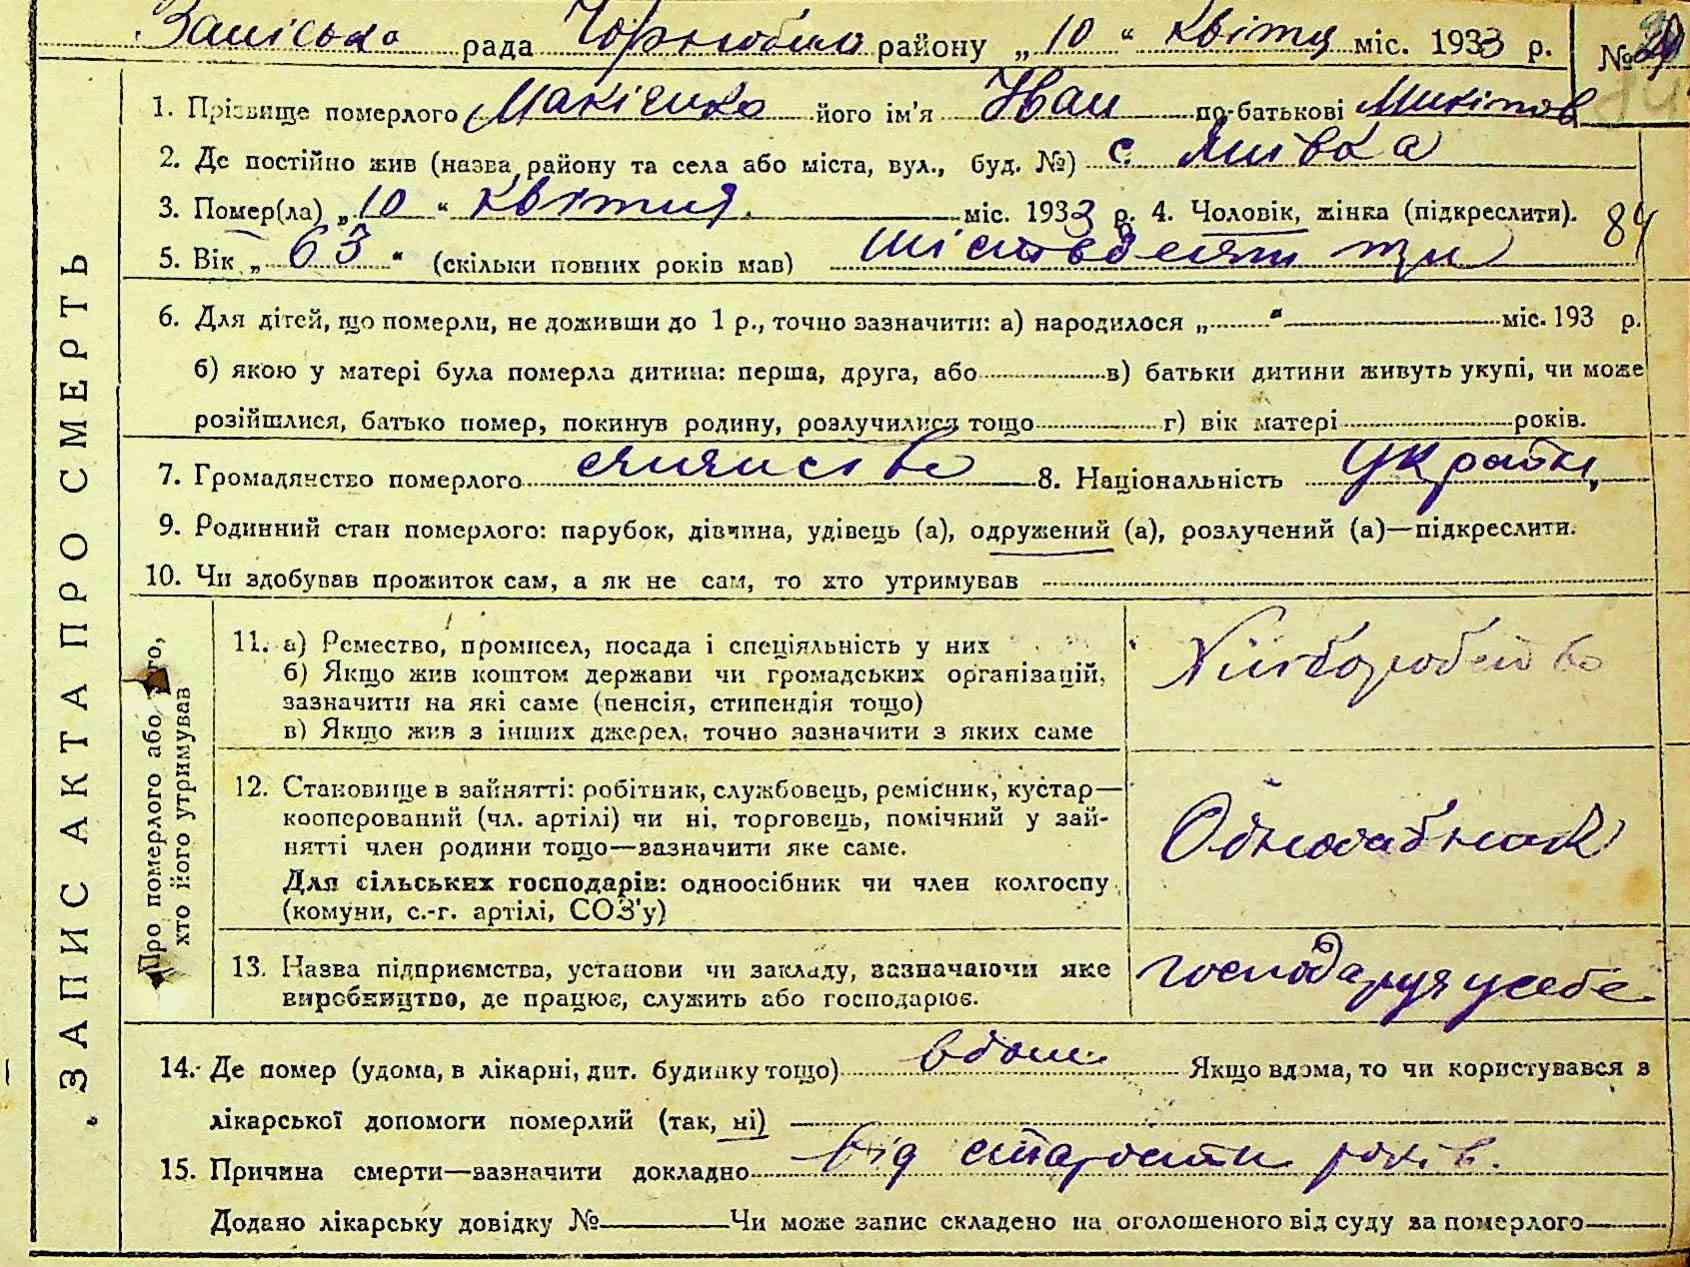 Заліська рада Чорнобил району „10“ Квітня міс. 1933 р. №
1. Прізвище померлого Макієнко його ім'я Иван по-батькові Микитов
2. Де постійно жив (назва району та села або міста, вул., буд. №) с. Янівка
3. Помер(ла) „10“ Квітня міс. 1933 р. 4. Чоловік, жінка (підкреслити). 84
5. Вік „63“ (скільки повних років мав) шістьдесять три
6. Для дітей, що померли, не доживши до 1 р., точно зазначити: а) народилося „ “ міс. 193 р.
б) якою у матері була померла дитина: перша, друга, або в) батьки дитини живуть укупі, чи може
розійшлися, батько помер, покинув родину, розлучилися тощо г) вік матері років.
7. Громадянство померлого 8. Національність Україн,
9. Родинний стан померлого: парубок, дівчина, удівець (а), одружений (а), розлучений (а)—підкреслити.
10. Чи здобував прожиток сам, а як не сам, то хто утримував
ЗАПИС АКТА ПРО СМЕРТЬ
Про померлого або того,
хто його утримував
11. а) Ремество, промисел, посада і спеціяльність у них
б) Якщо жив коштом держави чи громадських організацій,
зазначити на які саме (пенсія, стипендія тощо)
в) Якщо жив з інших джерел, точно зазначити з яких саме
Хліборобство
12. Становище в зайнятті: робітник, службовець, ремісник, кустар—
кооперований (чл. артілі) чи ні, торговець, помічний у зай-
нятті член родини тощо—зазначити яке саме.
Для сільських господарів: одноосібник чи член колгоспу
(комуни, с.-г. артілі, СОЗ'у)
13. Назва підприємства, установи чи закладу, зазначаючи яке
виробництво, де працює, служить або господарює.
господарує у себе
14. Де помер (удома, в лікарні, дит. будинку тощо) вдома Якщо вдома, то чи користувався з
лікарської допомоги померлий (так, ні)
15. Причина смерти—зазначити докладно від старости років.
Додано лікарську довідку № Чи може запис складено на оголошеного від суду за померлого